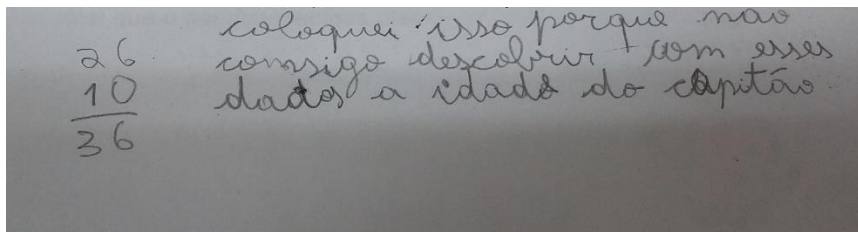 coloquei isso porque não
26 comsigo descobrir com esses
10 dados a idade do capitão
36